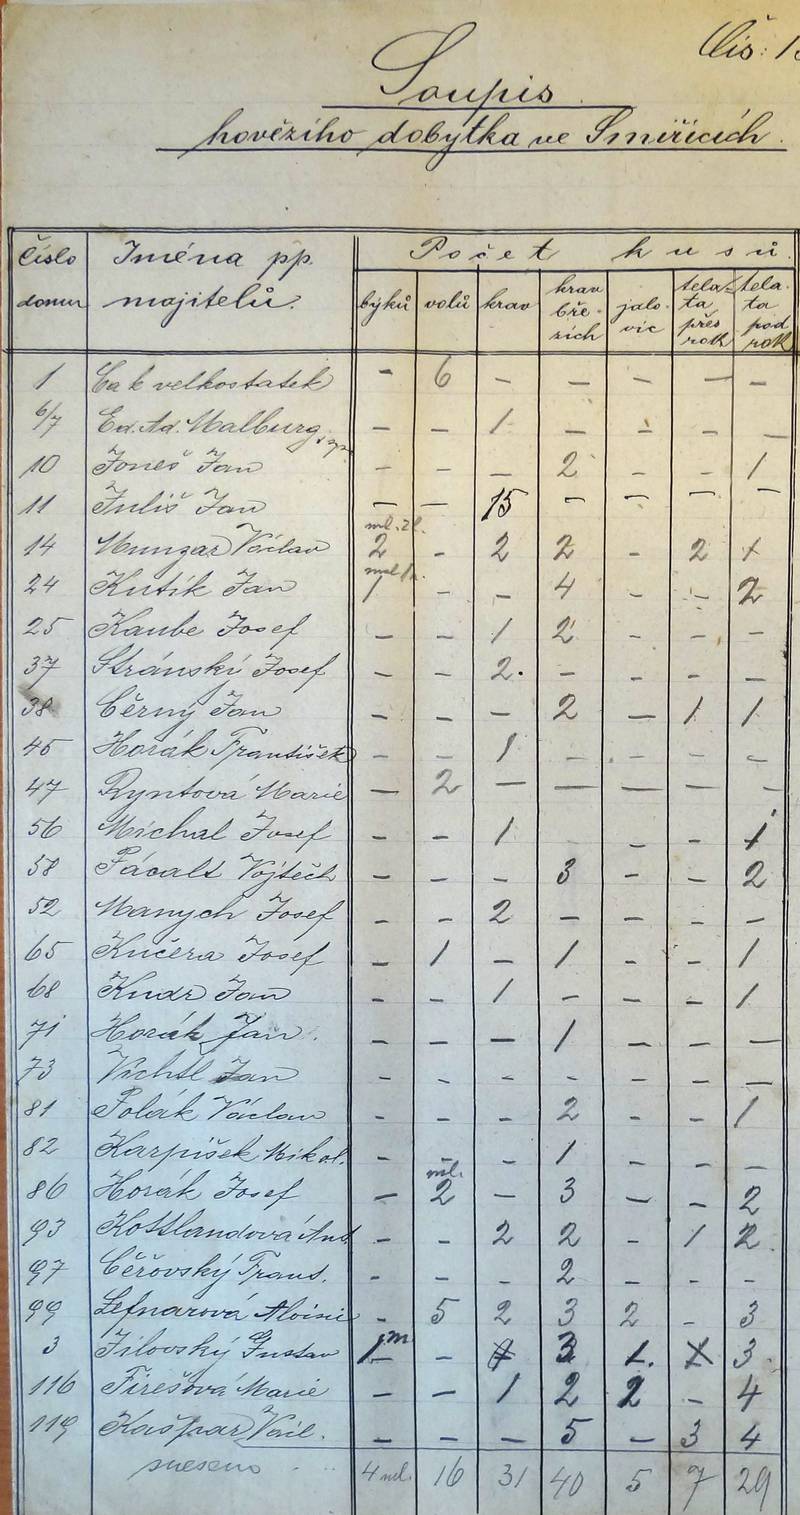 Čís: 15
Soupis
hovězího dobytka ve Smiřicích.
Číslo domu Jména pp. majitelů. Počet kusů.
býků volů krav krav bře-zích jalo-vic tela-ta přes rok tela-ta pod rok
1 Cak velkostatek - 6 - - - - -
6/7 Ed. Ad. Malburg - - 1 - - - -
10 Joneš Jan - - - 2 - - 1
11 Juliš Jan - - 15 - - - -
14 Mungar Václav ml. 2 - 2 2 - 2 1
24 Kutík Jan 1 - - 4 - - 2
25 Kaube Josef - - 1 2 - - -
37 Stránský Josef - - 2. - - - -
38 Černý Jan - - - 2 - 1 1
45 Horák František - - 1 - - - -
47 Ryntová Marie - 2 - - - - -
56 Michal Josef - - 1 - - 1
58 Pácalt Vojtěch - - - 3 - - 2
52 Manych Josef - - 2 - - - -
65 Kučera Josef - 1 - 1 - - 1
68 Kudr Jan - - 1 - - - 1
71 Horák Jan. - - - 1 - - -
73 Víchtl Jan - - - - - - -
81 Polák Václav - - - 2 - - 1
82 Karpíšek Mikol. - - - 1 - - -
86 Horák Josef - ml. 2 - 3 - - 2
93 Kottlandová Ant. - - 2 2 - 1 2
97 Čeřovský Frant. - - - 2 - - -
99 Lefnarová Aloisie - 5 2 3 2 - 3
3 Jílovský Gustav 1 - 3 1. 3.
116 Firešová Marie - - 1 2 2 - 4
119 Kašpar Václ. - - - 5 - 3 4
sneseno 4 ml. 16 31 40 5 7 29